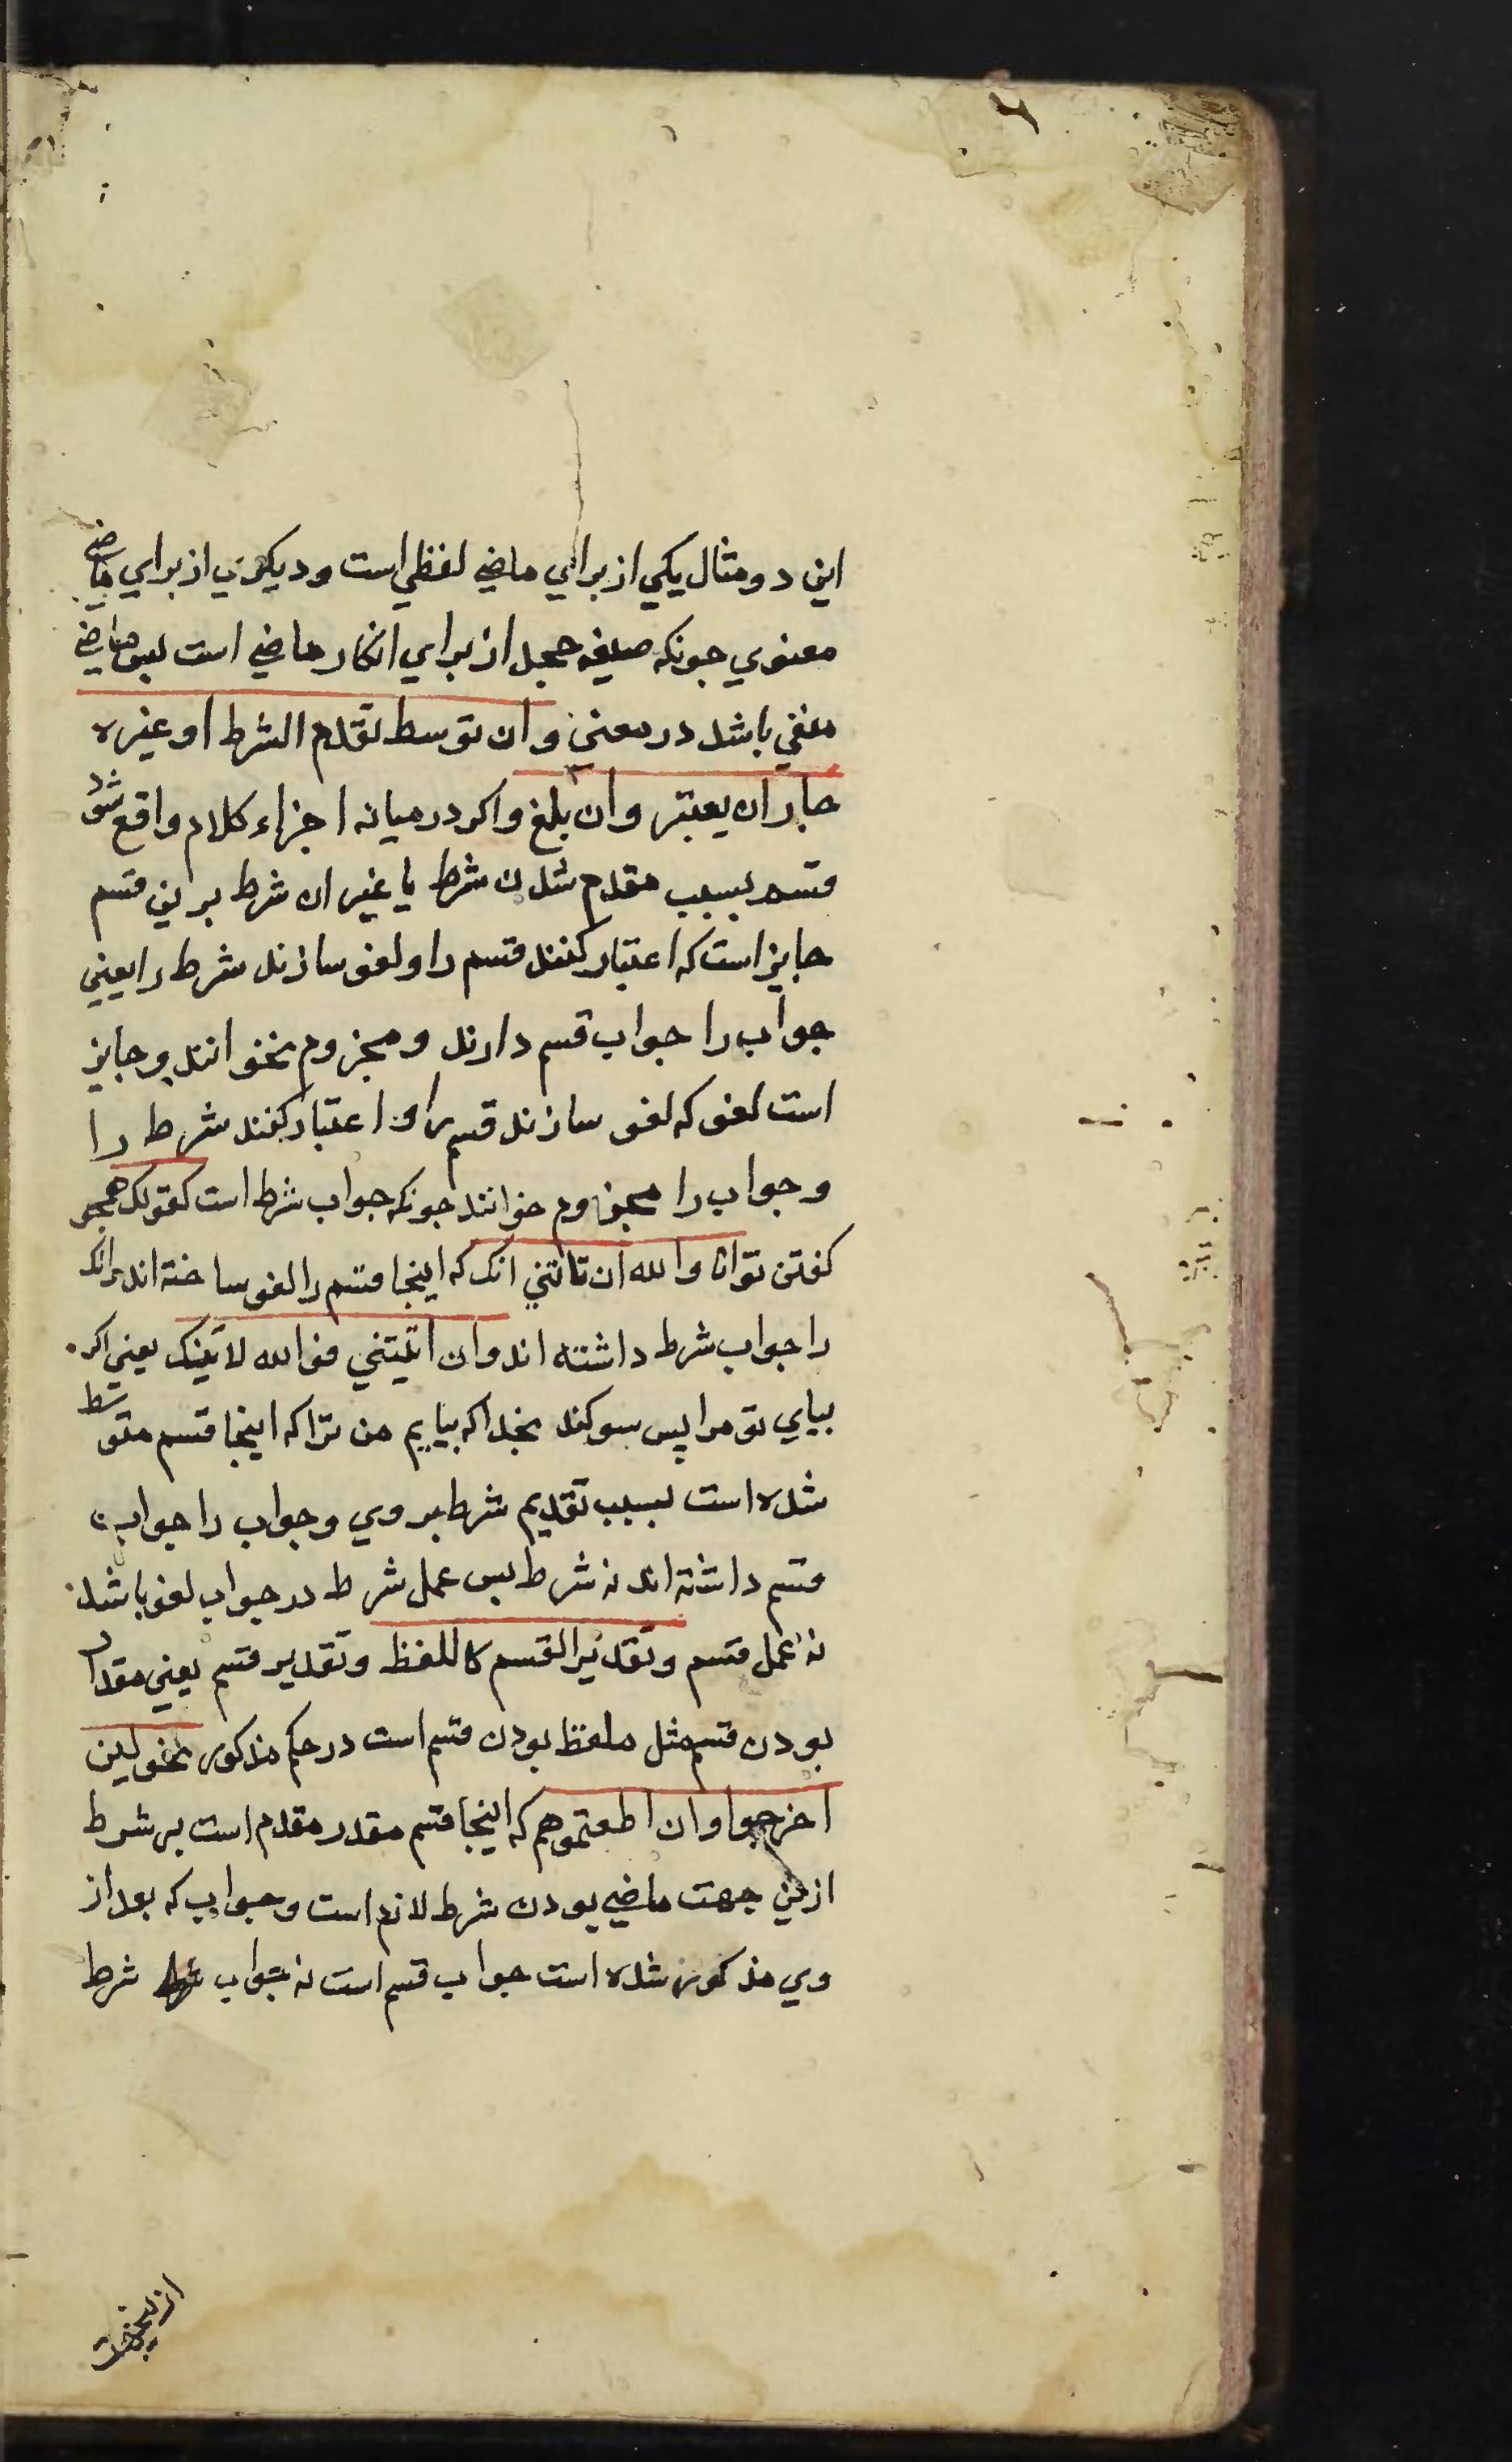 این دو مثال یکی از برای ماضی لفظی است و دیکری از برای ماضی
معنوی جونکه صیغه جحد از برای انکار ماضی است بس ماضی
منفی باشد در معنی وان توسط تقدم الشرط او غیره
جاز ان یعتبر وان یلغ واکر در میانه اجزاء کلام واقع شود
قسم بسبب مقدم شدن شرط یا غیر ان شرط برین قسم
جایز است که اعتبار کنند قسم را و لغو سازند شرط را یعنی
جواب را جواب قسم دارند و مجزوم نخوانند و جایز
است لغو که لغو سازند قسم را و اعتبار کنند شرط را
و جواب را مجزوم خوانند جونکه جواب شرط است کقولک همجو
کفتن تو انا والله ان تاتنی اتک که اینجا قسم را لغو ساخته اند واتک
را جواب شرط داشته اند وان اتیتنی فوالله لاتینک یعنی اکر
بیای تو مرا پس سوکند بخدا که بیایم من ترا که اینجا قسم متوسط
شده است بسبب تقدیم شرط بر وی و جواب را جواب
قسم داشته اند نه شرط بس عمل شرط در جواب لغو باشد
نه عمل قسم وتقدیر القسم کاللفظ و تقدیر قسم یعنی مقدر
بودن قسم مثل ملفظ بودن قسم است در حکم مذکور نحو لین
اخرجوا وان اطعتموهم که اینجا قسم مقدر مقدم است بر شرط
ازین جهت ماضی بودن شرط لازم است و جواب که بعد از
وی مذکور شده است جواب قسم است نه جواب شرط
ازینجهت